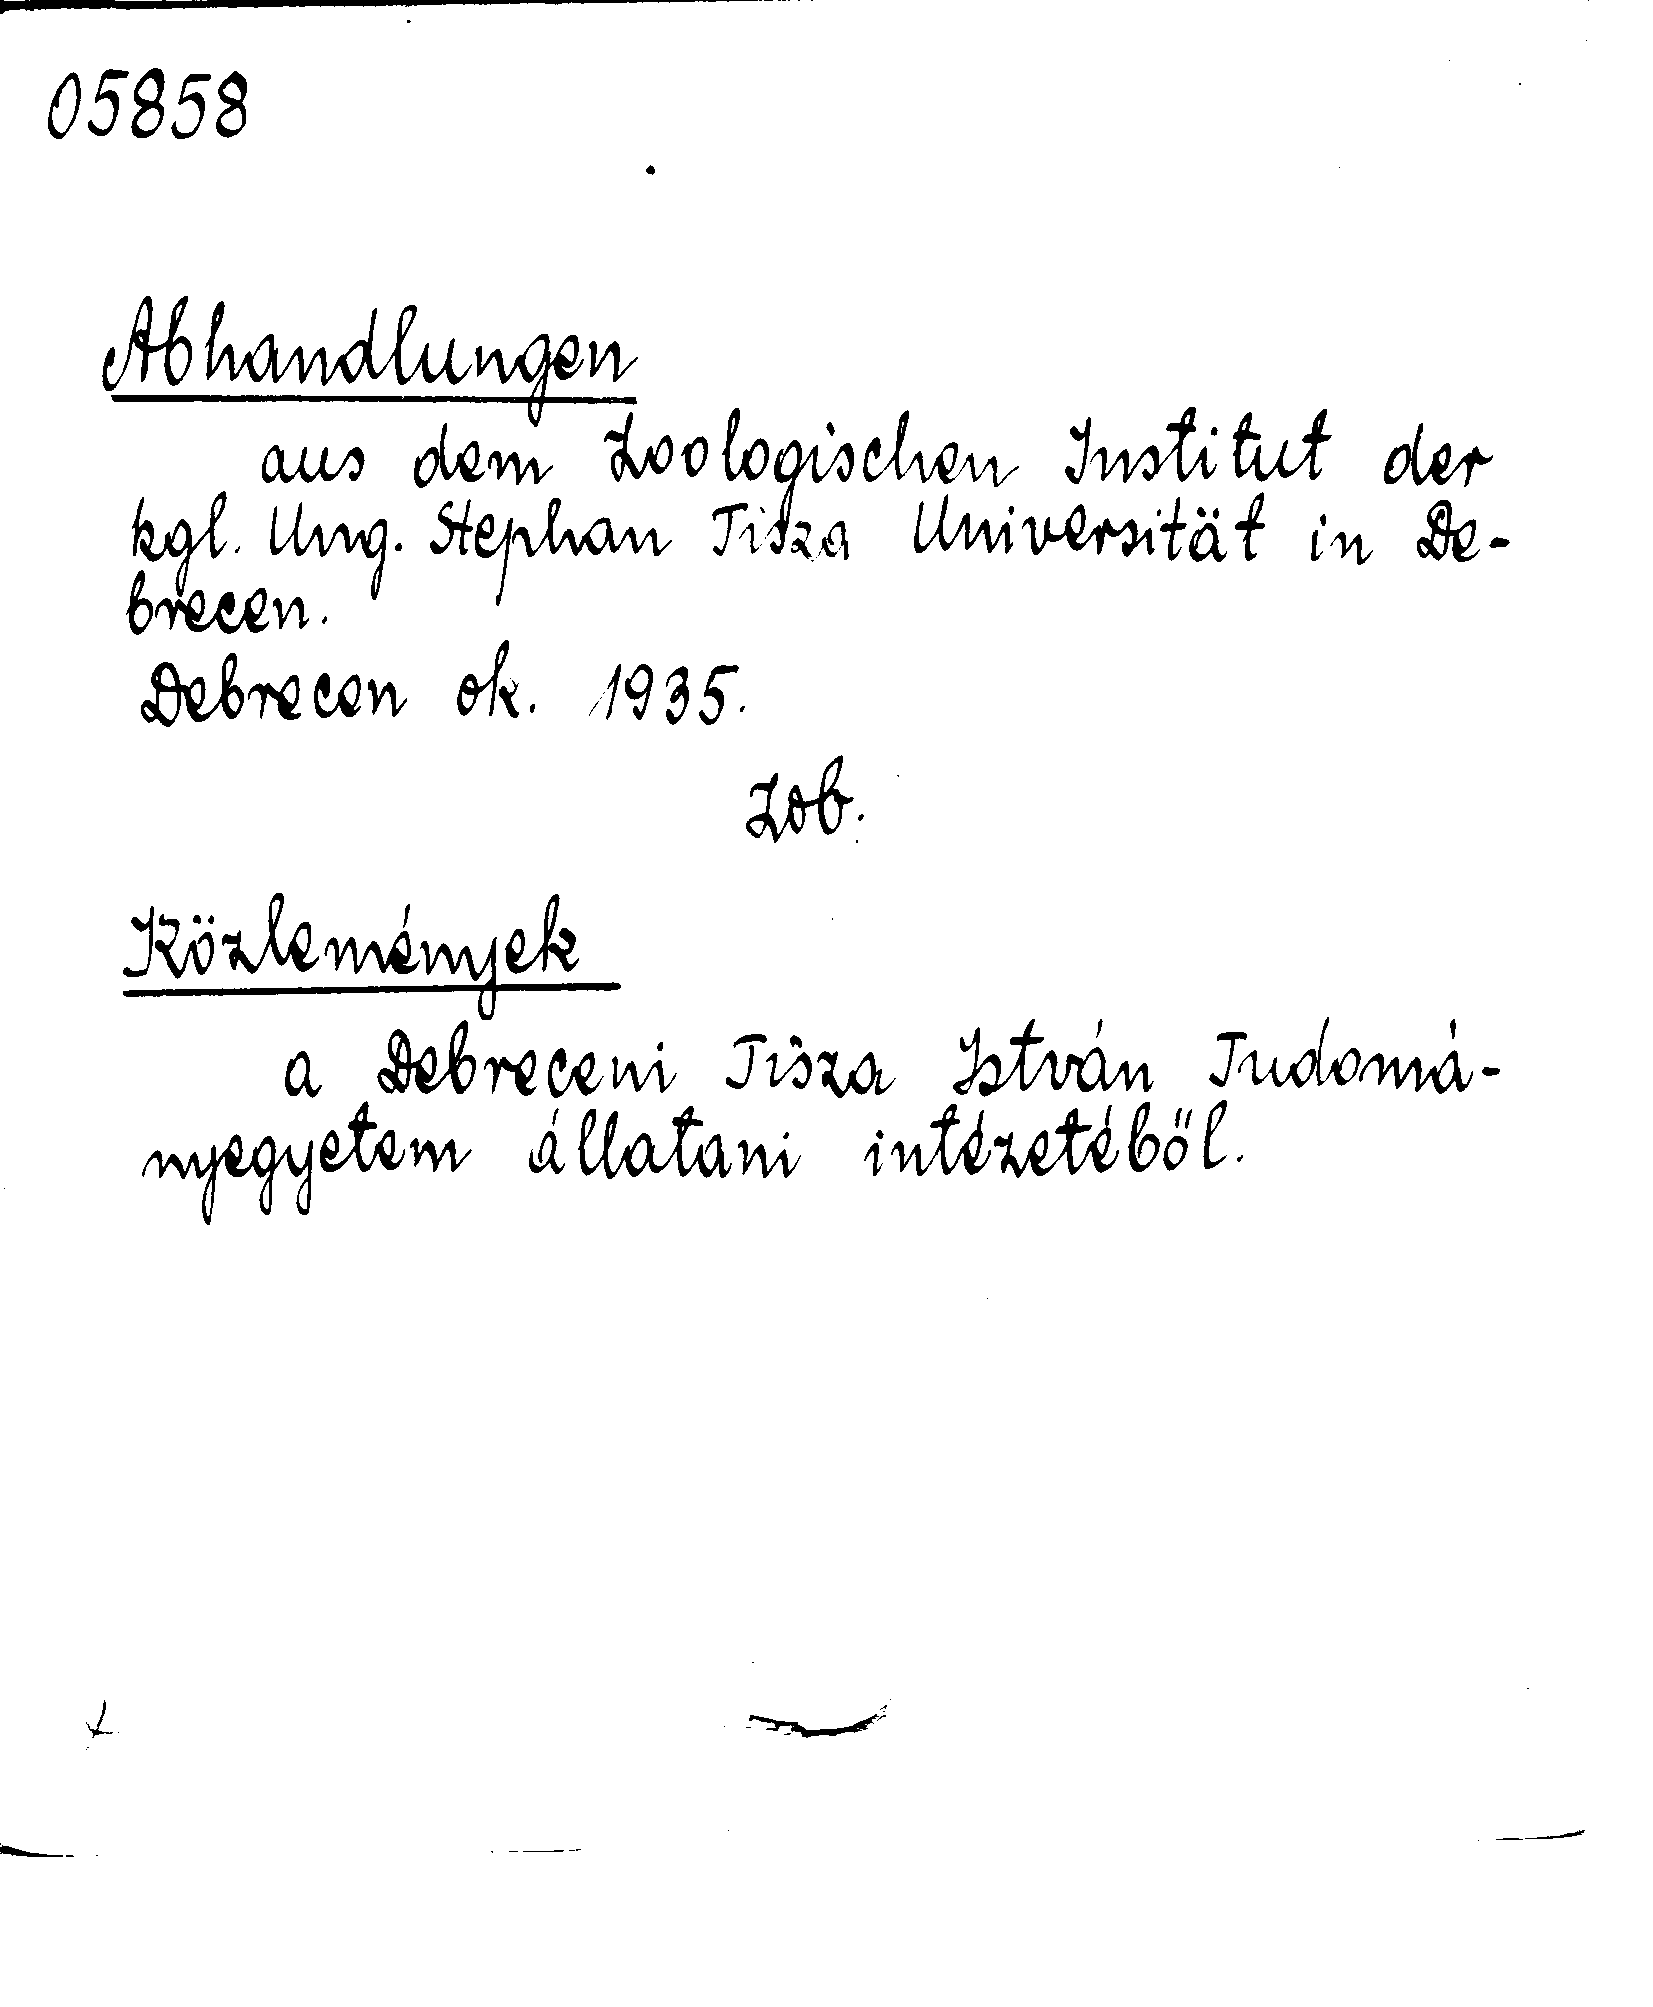 05858
Abhandlungen
aus dem Zoologischen Institut der
kgl. Ung. Stephan Tisza Universität in De-
brecen.
Debrecen ok. 1935.
Lob.
Közlemények
a Debreceni Tisza István Tudomá-
nyegyetem állatani intézetéből.